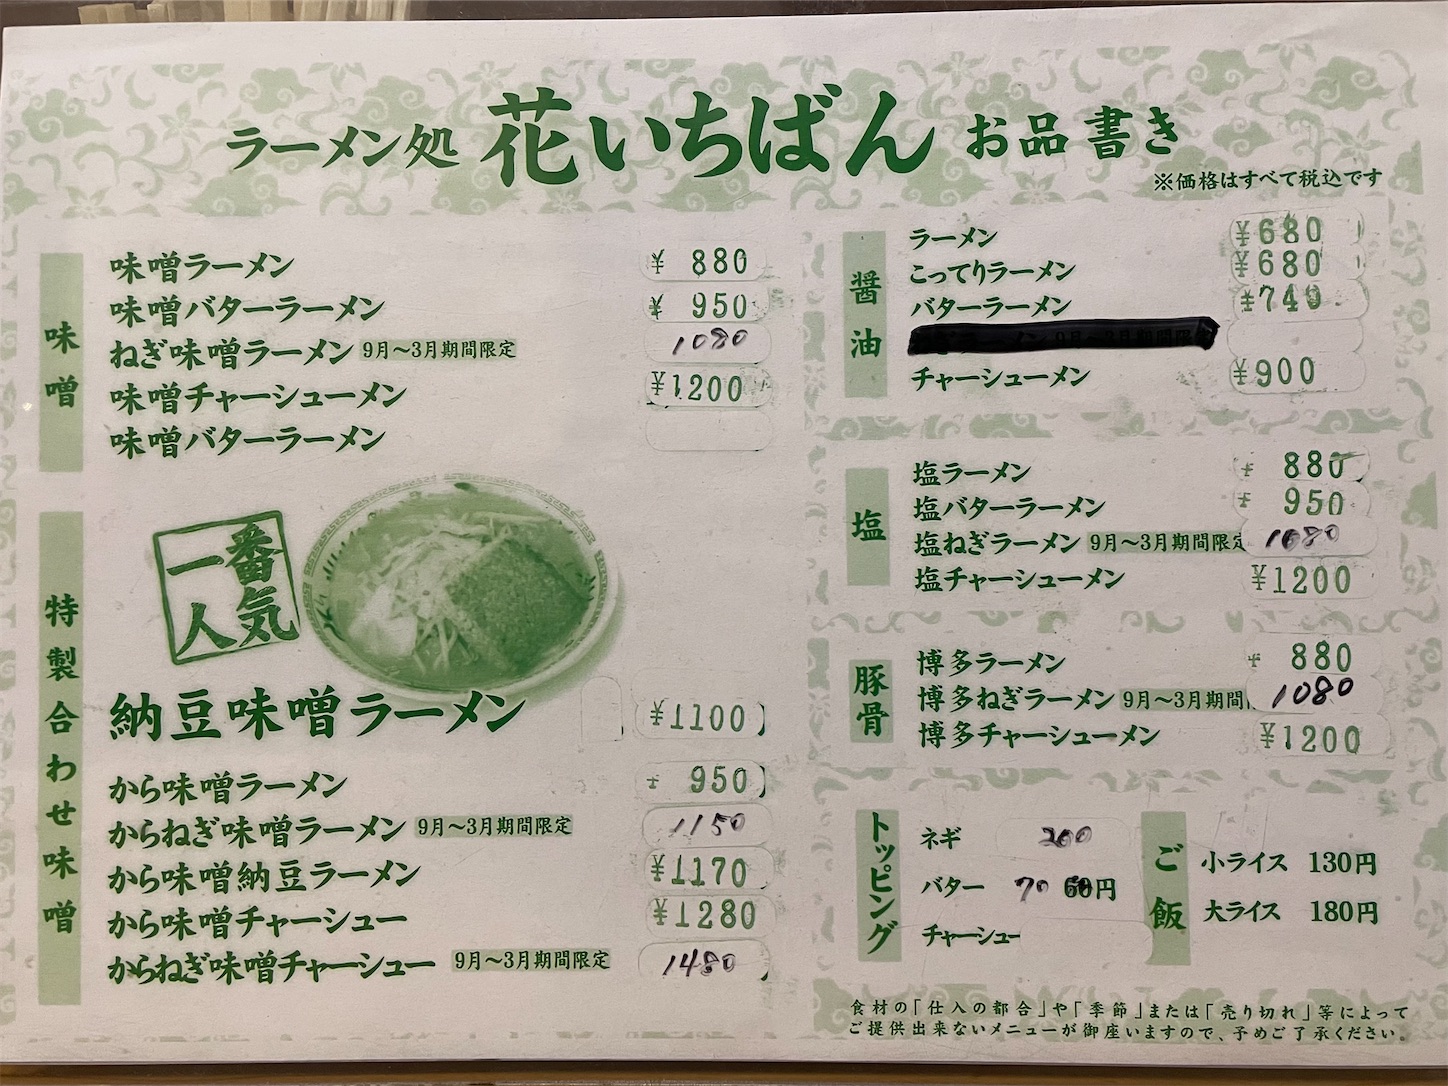 ラーメン処 花いちばん お品書き
※価格はすべて税込です
味噌
味噌ラーメン ¥ 880
味噌バターラーメン ¥ 950
ねぎ味噌ラーメン 9月〜3月期間限定 1080
味噌チャーシューメン ¥1200
味噌バターラーメン
一番人気
特製合わせ味噌
納豆味噌ラーメン ¥1100
から味噌ラーメン ¥ 950
からねぎ味噌ラーメン 9月〜3月期間限定 1150
から味噌納豆ラーメン ¥1170
から味噌チャーシュー ¥1280
からねぎ味噌チャーシュー 9月〜3月期間限定 1480
醤油
ラーメン ¥680
こってりラーメン ¥680
バターラーメン ¥740
チャーシューメン ¥900
塩
塩ラーメン ¥ 880
塩バターラーメン ¥ 950
塩ねぎラーメン 9月〜3月期間限定 1080
塩チャーシューメン ¥1200
豚骨
博多ラーメン ¥ 880
博多ねぎラーメン 9月〜3月期間 1080
博多チャーシューメン ¥1200
トッピング
ネギ 200
バター 70 60円
チャーシュー
ご飯
小ライス 130円
大ライス 180円
食材の「仕入の都合」や「季節」または「売り切れ」等によって
ご提供出来ないメニューが御座いますので、予めご了承ください。